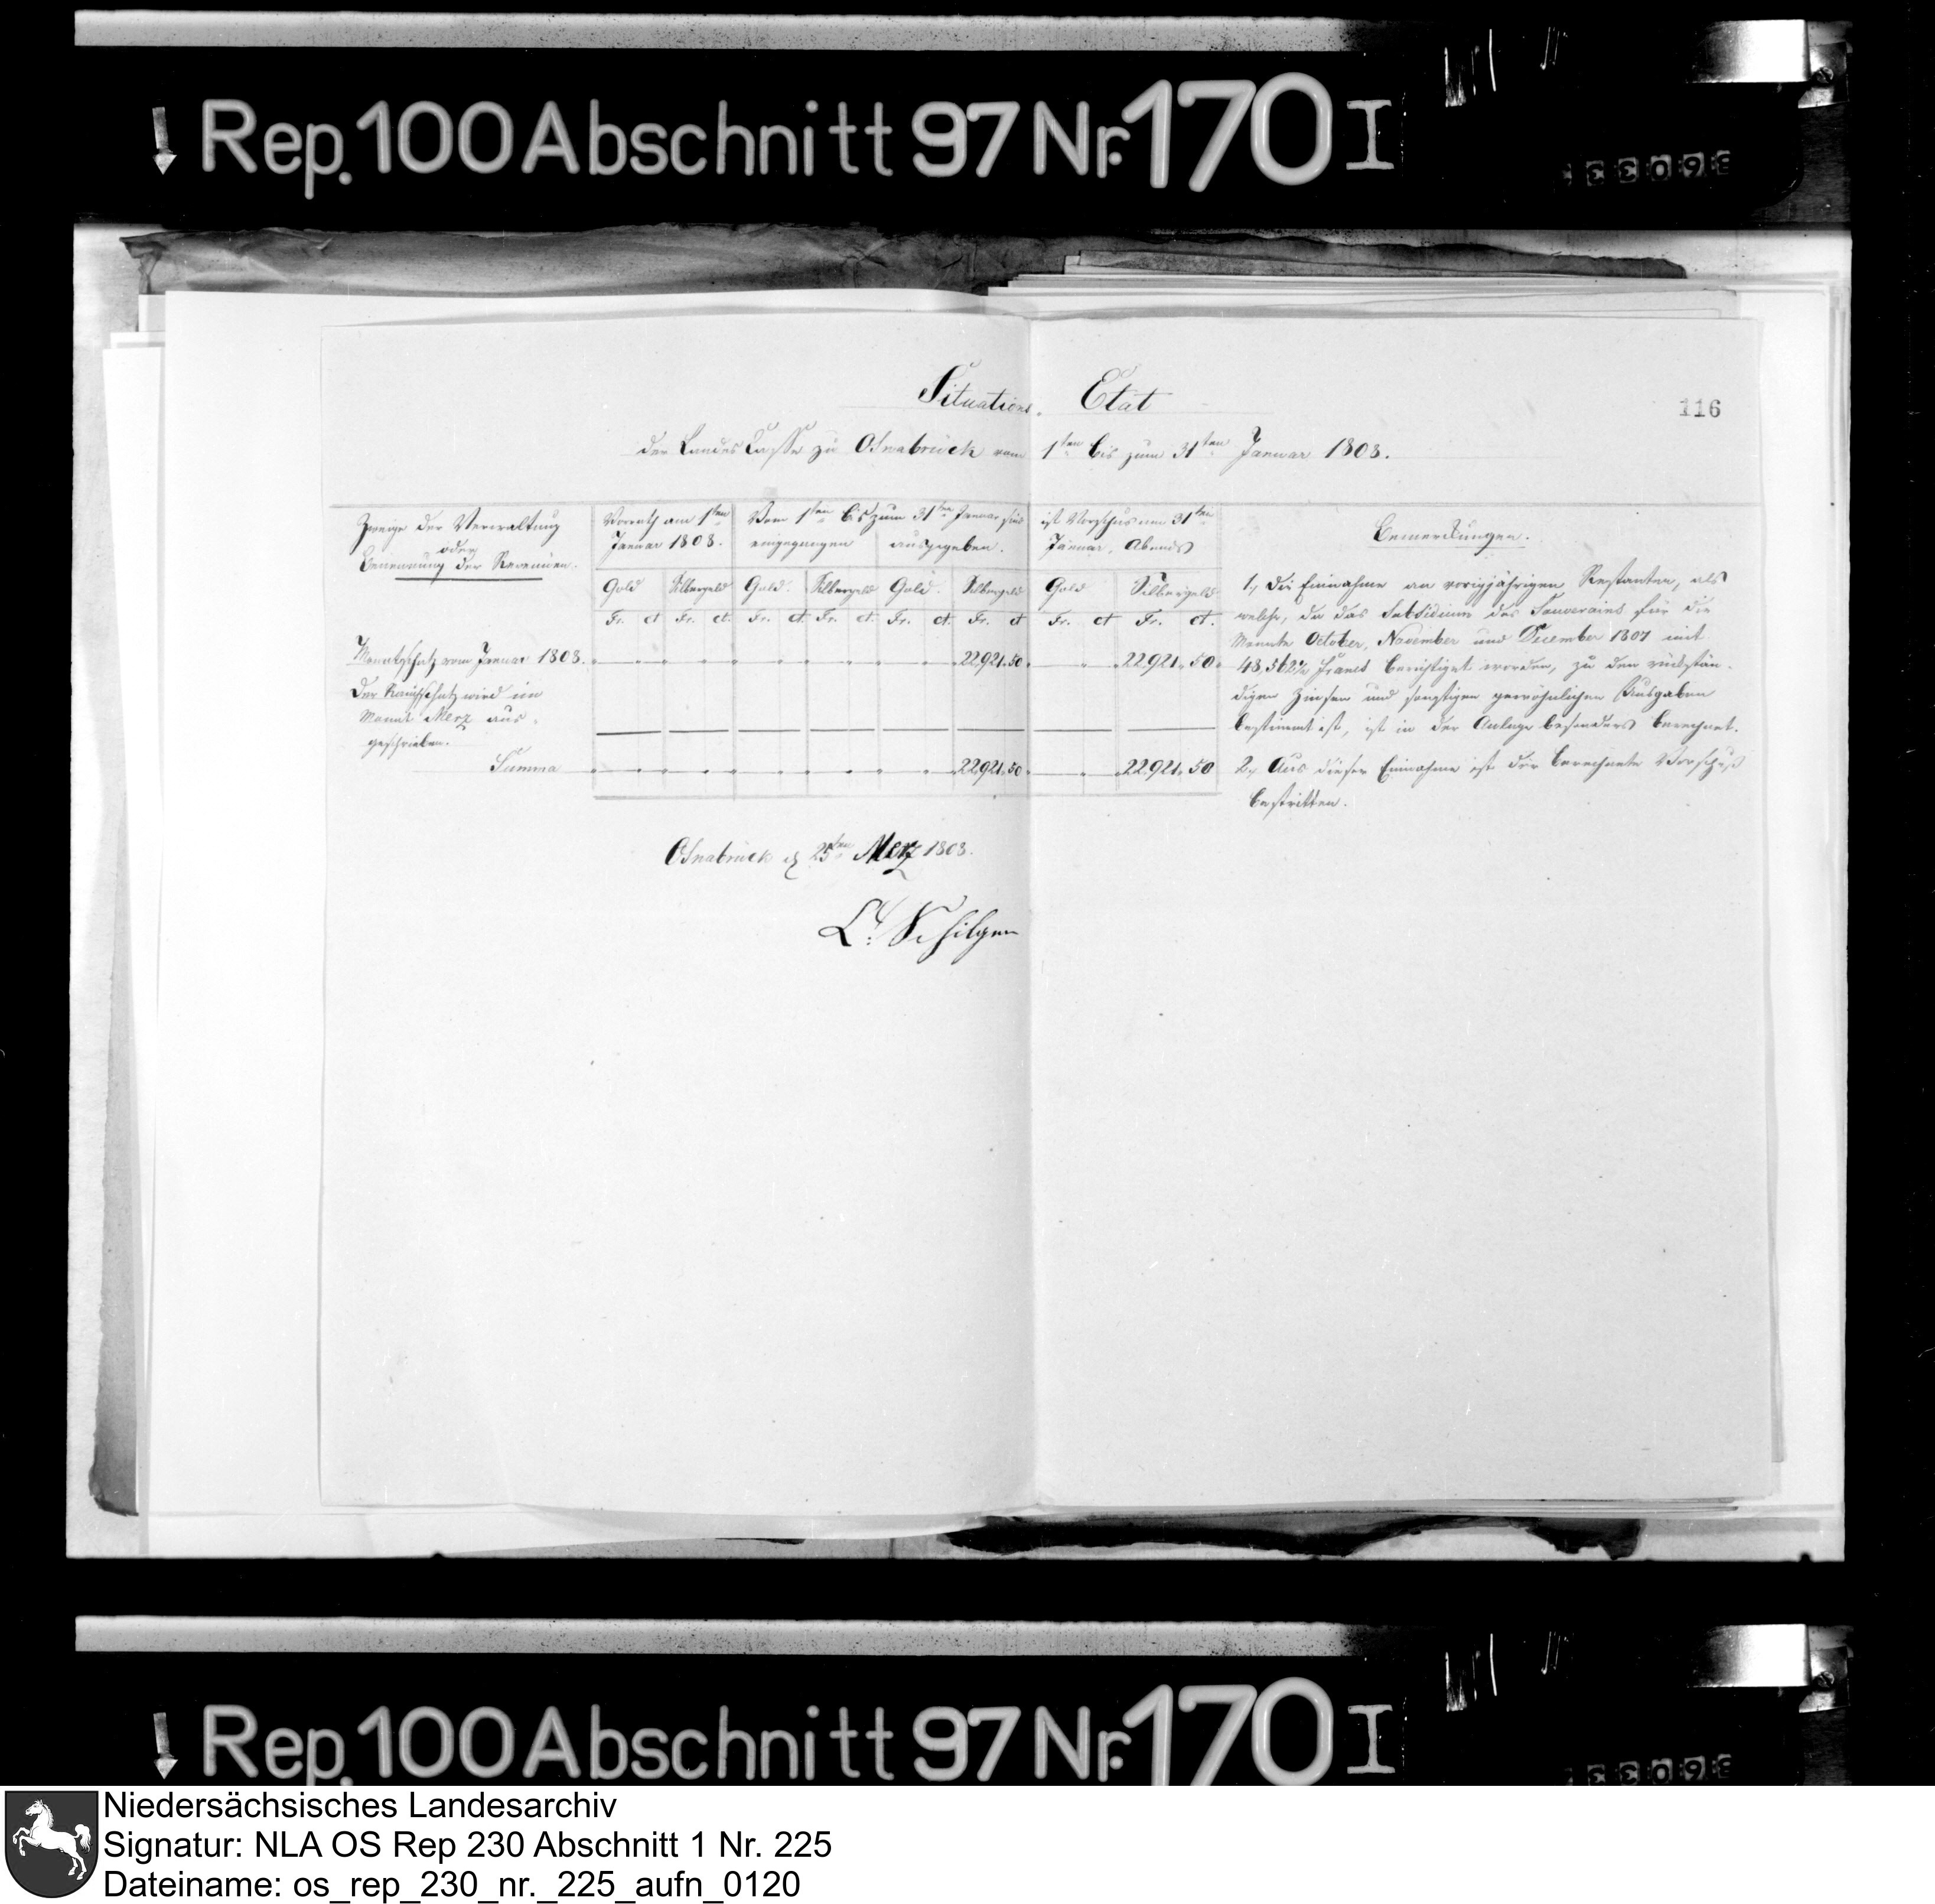 Rep. 100 Abschnitt 97 Nr. 170 I
Situations Etat
116
der Landes Casse zu Osnabrück vom 1ten bis zum 31ten Januar 1808.
Zweige der Verwaltung
oder
Benennung der Revenüen.
Vorrath am 1ten
Januar 1808.
Vom 1ten bis zum 31ten Januar sind
eingegangen ausgegeben.
ist Vorschus am 31ten
Januar, Abends
Bemerkungen.
Gold Silbergeld Gold. Silbergeld Gold. Silbergeld Gold Silbergeld
Fr. ct Fr. ct. Fr. ct Fr. ct. Fr. ct. Fr. ct Fr. ct Fr. ct.
Monatschatz vom Januar 1808. 22,921. 50. 22,921. 50.
Der Rauchschatz wird im
Monat Merz aus-
geschrieben.
Summa 22,921. 50 22,921. 50
1, Die Einnahme an vorigjährigen Restanten, als
welche, da das Subsidium des Souverains für die
Monate October, November und December 1807 mit
48,562½ Francs berichtiget worden, zu den rückstän-
digen Zinsen und sonstigen gewöhnlichen Ausgaben
bestimmt ist, ist in der Anlage besonders berechnet.
2, Aus dieser Einnahme ist der berechnete Vorschuß
bestritten.
Osnabrück d 25ten Merz 1808.
Schilgen
Rep. 100 Abschnitt 97 Nr. 170 I
Niedersächsisches Landesarchiv
Signatur: NLA OS Rep 230 Abschnitt 1 Nr. 225
Dateiname: os_rep_230_nr._225_aufn_0120